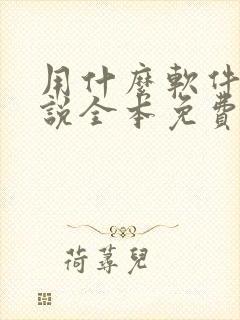 用什麼軟件
說全本免費
荷蕁兒